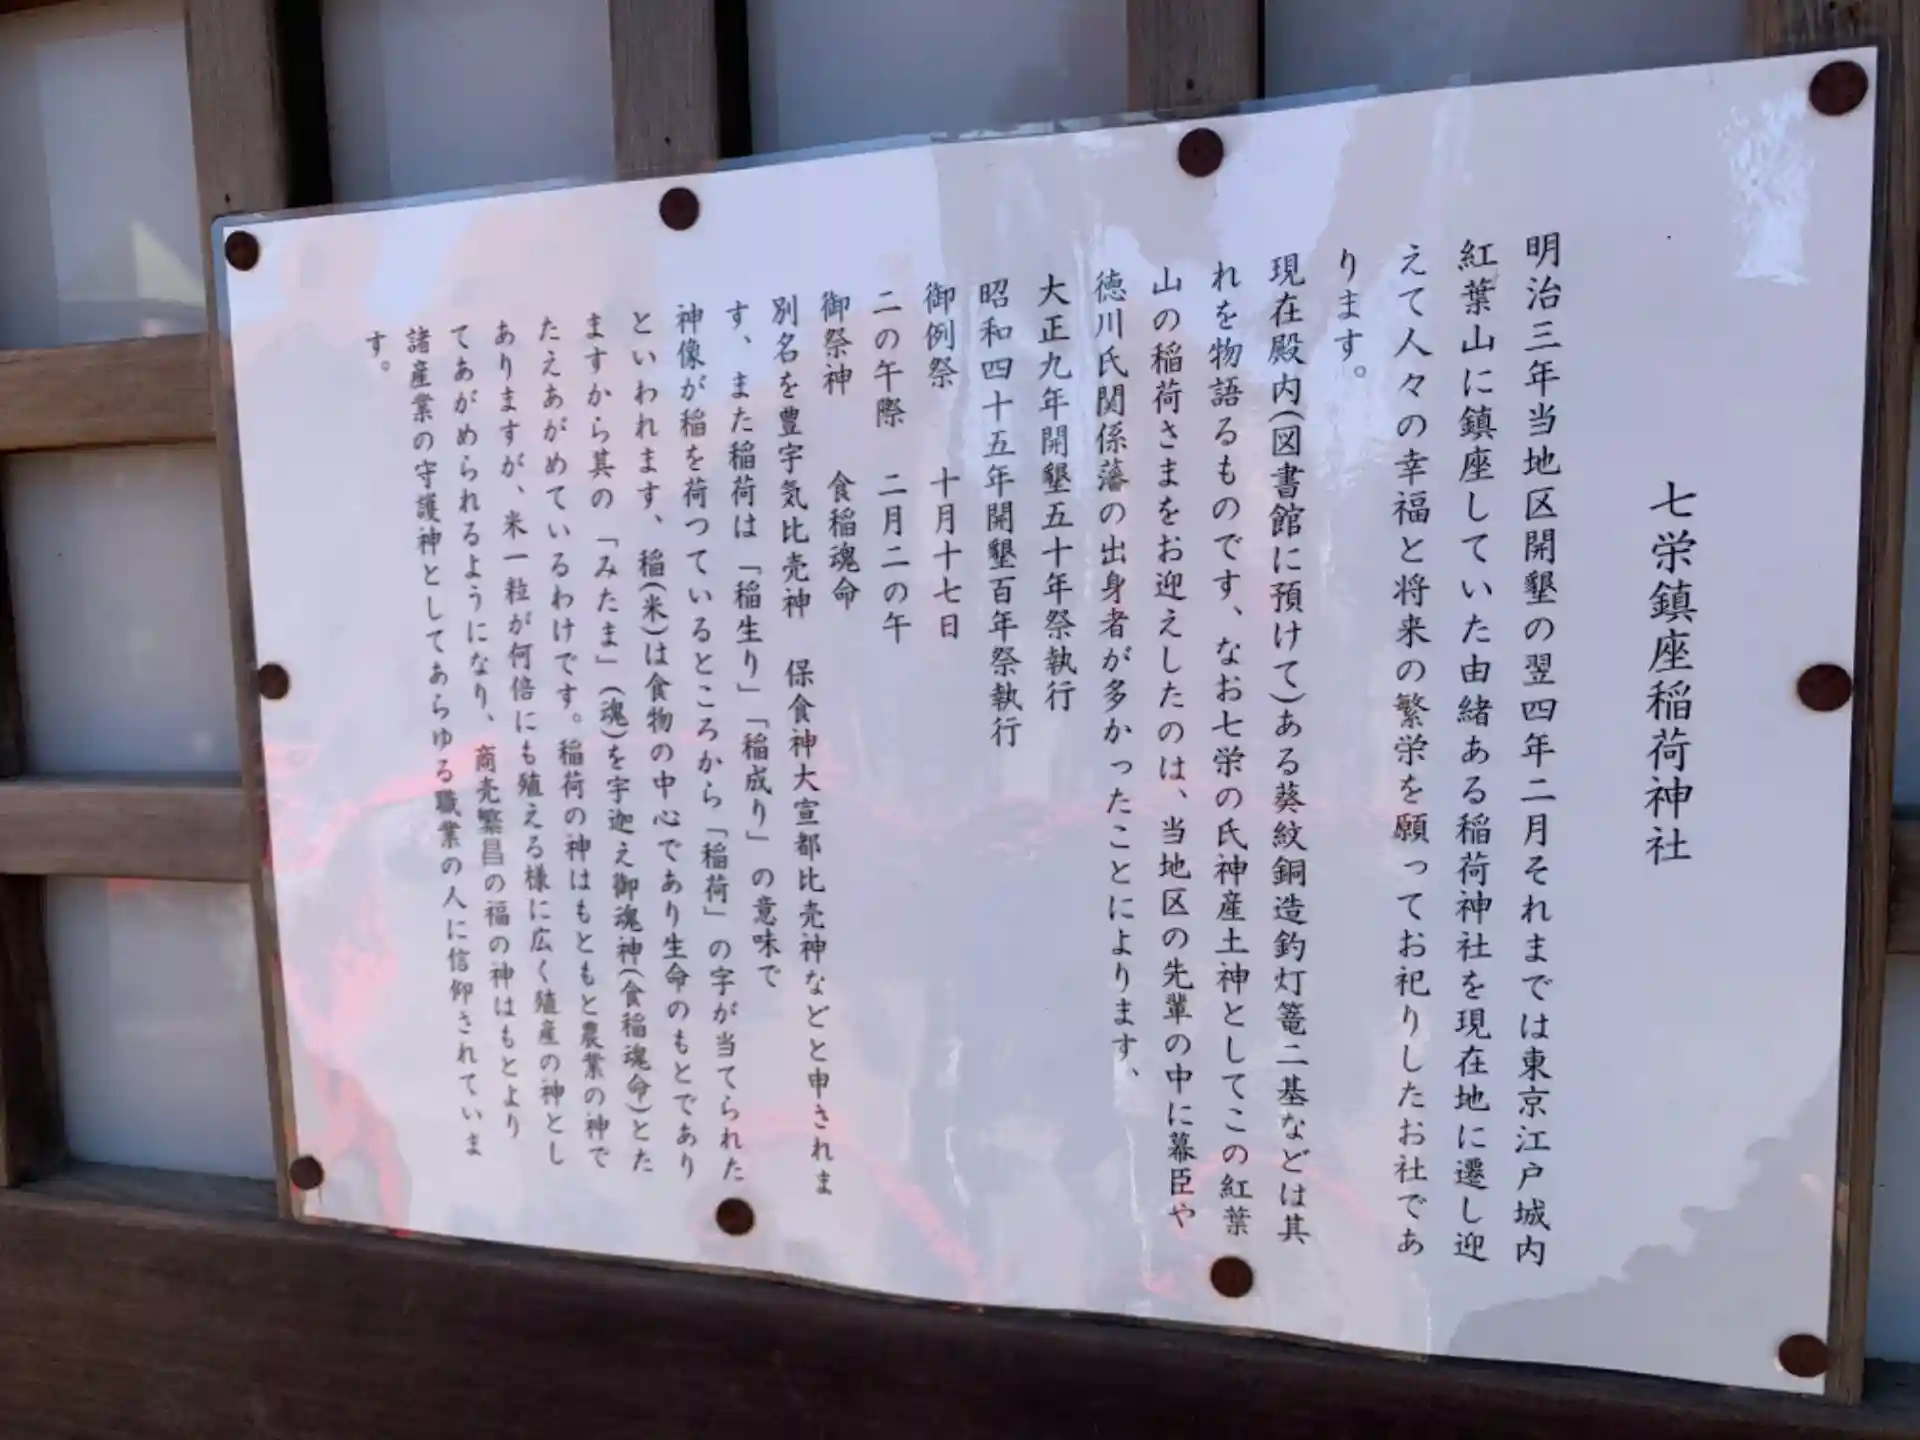 七栄鎮座稲荷神社
明治三年当地区開墾の翌四年二月それまでは東京江戸城内
紅葉山に鎮座していた由緒ある稲荷神社を現在地に遷し迎
えて人々の幸福と将来の繁栄を願ってお祀りしたお社であ
ります。
現在殿内(図書館に預けて)ある葵紋銅造釣灯篭二基などは其
れを物語るものです、なお七栄の氏神産土神としてこの紅葉
山の稲荷さまをお迎えしたのは、当地区の先輩の中に幕臣や
徳川氏関係藩の出身者が多かったことによります、
大正九年開墾五十年祭執行
昭和四十五年開墾百年祭執行
御例祭 十月十七日
二の午際 二月二の午
御祭神 食稲魂命
別名を豊宇気比売神 保食神大宣都比売神などと申されま
す、また稲荷は「稲生り」「稲成り」の意味で
神像が稲を荷つているところから「稲荷」の字が当てられた
といわれます、稲(米)は食物の中心であり生命のもとであり
ますから其の「みたま」(魂)を宇迦え御魂神(食稲魂命)とた
たえあがめているわけです。稲荷の神はもともと農業の神で
ありますが、米一粒が何倍にも殖える様に広く殖産の神とし
てあがめられるようになり、商売繁昌の福の神はもとより
諸産業の守護神としてあらゆる職業の人に信仰されていま
す。